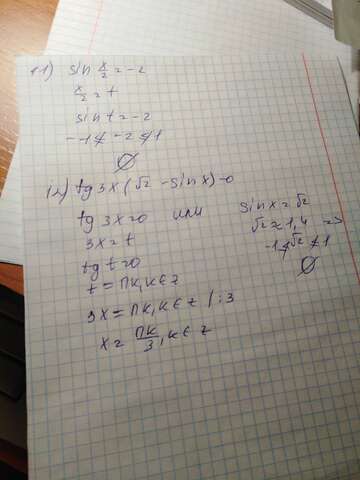 11) sin x/2 = -2
x/2 = t
sin t = -2
-1 ≰ -2 ≰ 1
∅
12) tg 3x (√2 - sin x) = 0
tg 3x = 0 или sin x = √2
3x = t √2 ≈ 1,4 =>
tg t = 0 -1 ≰ √2 ≰ 1
t = πk, k ∈ z ∅
3x = πk, k ∈ z | : 3
x = πk/3, k ∈ z